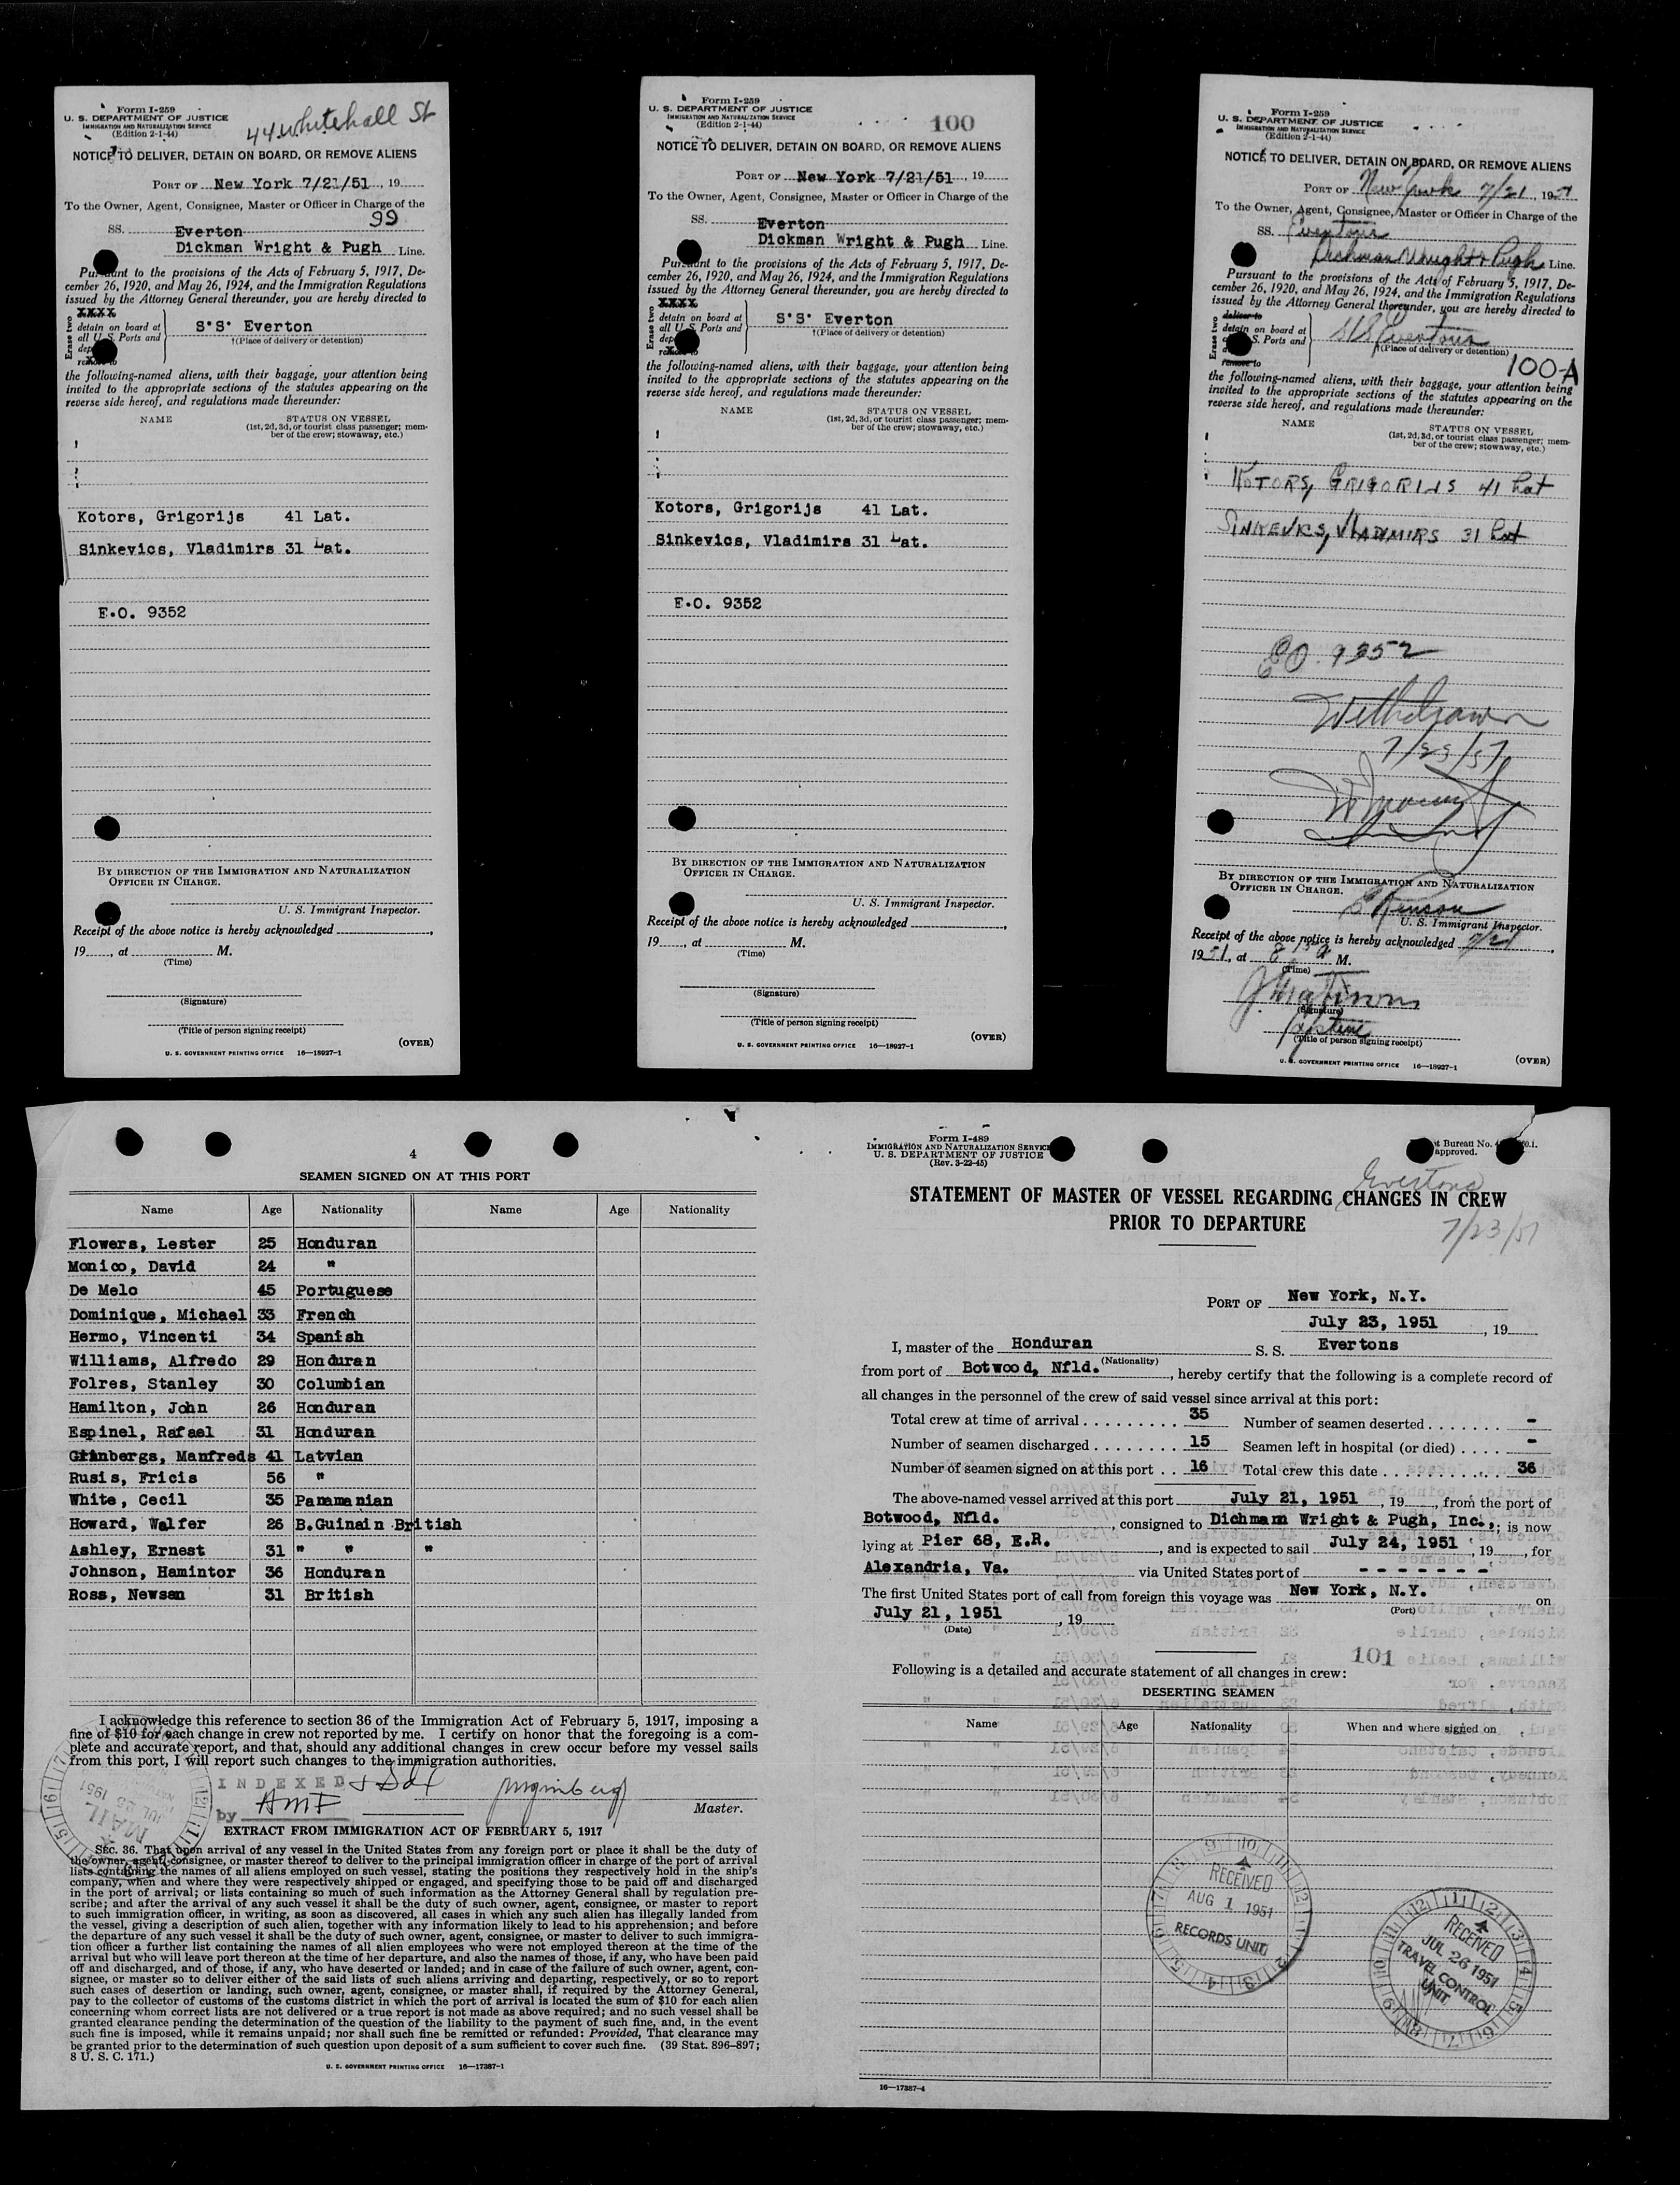 Form I-259
U. S. DEPARTMENT OF JUSTICE
IMMIGRATION AND NATURALIZATION SERVICE
(Edition 2-1-44)
44 Whitehall St
NOTICE TO DELIVER, DETAIN ON BOARD, OR REMOVE ALIENS
PORT OF New York 7/21/51, 19
To the Owner, Agent, Consignee, Master or Officer in Charge of the
99
SS. Everton
Dickman Wright & Pugh Line.
Pursuant to the provisions of the Acts of February 5, 1917, De-
cember 26, 1920, and May 26, 1924, and the Immigration Regulations
issued by the Attorney General thereunder, you are hereby directed to
Erase two
XXXX
detain on board at
all U. S. Ports and
S*S* Everton
†(Place of delivery or detention)
the following-named aliens, with their baggage, your attention being
invited to the appropriate sections of the statutes appearing on the
reverse side hereof, and regulations made thereunder:
NAME STATUS ON VESSEL
(1st, 2d, 3d, or tourist class passenger; mem-
ber of the crew; stowaway, etc.)
Kotors, Grigorijs 41 Lat.
Sinkevics, Vladimirs 31 Lat.
E.O. 9352
BY DIRECTION OF THE IMMIGRATION AND NATURALIZATION
OFFICER IN CHARGE.
U. S. Immigrant Inspector.
Receipt of the above notice is hereby acknowledged ,
19 , at M.
(Time)
(Signature)
(Title of person signing receipt)
(OVER)
U. S. GOVERNMENT PRINTING OFFICE 16—18927-1
Form I-259
U. S. DEPARTMENT OF JUSTICE
IMMIGRATION AND NATURALIZATION SERVICE
(Edition 2-1-44)
100
NOTICE TO DELIVER, DETAIN ON BOARD, OR REMOVE ALIENS
PORT OF New York 7/21/51, 19
To the Owner, Agent, Consignee, Master or Officer in Charge of the
SS. Everton
Dickman Wright & Pugh Line.
Pursuant to the provisions of the Acts of February 5, 1917, De-
cember 26, 1920, and May 26, 1924, and the Immigration Regulations
issued by the Attorney General thereunder, you are hereby directed to
Erase two
XXXX
detain on board at
all U. S. Ports and
S*S* Everton
†(Place of delivery or detention)
the following-named aliens, with their baggage, your attention being
invited to the appropriate sections of the statutes appearing on the
reverse side hereof, and regulations made thereunder:
NAME STATUS ON VESSEL
(1st, 2d, 3d, or tourist class passenger; mem-
ber of the crew; stowaway, etc.)
Kotors, Grigorijs 41 Lat.
Sinkevics, Vladimirs 31 Lat.
E.O. 9352
BY DIRECTION OF THE IMMIGRATION AND NATURALIZATION
OFFICER IN CHARGE.
U. S. Immigrant Inspector.
Receipt of the above notice is hereby acknowledged ,
19 , at M.
(Time)
(Signature)
(Title of person signing receipt)
(OVER)
U. S. GOVERNMENT PRINTING OFFICE 16—18927-1
Form I-259
U. S. DEPARTMENT OF JUSTICE
IMMIGRATION AND NATURALIZATION SERVICE
(Edition 2-1-44)
NOTICE TO DELIVER, DETAIN ON BOARD, OR REMOVE ALIENS
PORT OF New York 7/21 1951
To the Owner, Agent, Consignee, Master or Officer in Charge of the
SS. Evertons
Dickman Wright & Pugh Line.
Pursuant to the provisions of the Acts of February 5, 1917, De-
cember 26, 1920, and May 26, 1924, and the Immigration Regulations
issued by the Attorney General thereunder, you are hereby directed to
Erase two
deliver to
detain on board at
S. Ports and
remove to
SS Evertons
†(Place of delivery or detention)
100-A
the following-named aliens, with their baggage, your attention being
invited to the appropriate sections of the statutes appearing on the
reverse side hereof, and regulations made thereunder:
NAME STATUS ON VESSEL
(1st, 2d, 3d, or tourist class passenger; mem-
ber of the crew; stowaway, etc.)
KOTORS, GRIGORIJS 41 Lat
SINKEVICS, VLADIMIRS 31 Lat
EO. 9352
Withdrawn
7/23/51
BY DIRECTION OF THE IMMIGRATION AND NATURALIZATION
OFFICER IN CHARGE.
U. S. Immigrant Inspector.
Receipt of the above notice is hereby acknowledged 7/21,
1951, at M.
(Time)
(Signature)
(Title of person signing receipt)
(OVER)
U. S. GOVERNMENT PRINTING OFFICE 16—18927-1
4
SEAMEN SIGNED ON AT THIS PORT
Name Age Nationality Name Age Nationality
Flowers, Lester 25 Honduran
Monico, David 24 "
De Melo 45 Portuguese
Dominique, Michael 33 French
Hermo, Vincenti 34 Spanish
Williams, Alfredo 29 Honduran
Folres, Stanley 30 Columbian
Hamilton, John 26 Honduran
Espinel, Rafael 31 Honduran
Grinbergs, Manfreds 41 Latvian
Rusis, Fricis 56 "
White, Cecil 35 Panamanian
Howard, Walfer 26 B.Guinain British
Ashley, Ernest 31 " " "
Johnson, Hamintor 36 Honduran
Ross, Newsan 31 British
I acknowledge this reference to section 36 of the Immigration Act of February 5, 1917, imposing a
fine of $10 for each change in crew not reported by me. I certify on honor that the foregoing is a com-
plete and accurate report, and that, should any additional changes in crew occur before my vessel sails
from this port, I will report such changes to the immigration authorities.
INDEXED
by AMF
Master.
MAIL
JUL 25 1951
EXTRACT FROM IMMIGRATION ACT OF FEBRUARY 5, 1917
SEC. 36. That upon arrival of any vessel in the United States from any foreign port or place it shall be the duty of
the owner, agent, consignee, or master thereof to deliver to the principal immigration officer in charge of the port of arrival
lists containing the names of all aliens employed on such vessel, stating the positions they respectively hold in the ship's
company, when and where they were respectively shipped or engaged, and specifying those to be paid off and discharged
in the port of arrival; or lists containing so much of such information as the Attorney General shall by regulation pre-
scribe; and after the arrival of any such vessel it shall be the duty of such owner, agent, consignee, or master to report
to such immigration officer, in writing, as soon as discovered, all cases in which any such alien has illegally landed from
the vessel, giving a description of such alien, together with any information likely to lead to his apprehension; and before
the departure of any such vessel it shall be the duty of such owner, agent, consignee, or master to deliver to such immigra-
tion officer a further list containing the names of all alien employees who were not employed thereon at the time of the
arrival but who will leave port thereon at the time of her departure, and also the names of those, if any, who have been paid
off and discharged, and of those, if any, who have deserted or landed; and in case of the failure of such owner, agent, con-
signee, or master so to deliver either of the said lists of such aliens arriving and departing, respectively, or so to report
such cases of desertion or landing, such owner, agent, consignee, or master shall, if required by the Attorney General,
pay to the collector of customs of the customs district in which the port of arrival is located the sum of $10 for each alien
concerning whom correct lists are not delivered or a true report is not made as above required; and no such vessel shall be
granted clearance pending the determination of the question of the liability to the payment of such fine, and, in the event
such fine is imposed, while it remains unpaid; nor shall such fine be remitted or refunded: Provided, That clearance may
be granted prior to the determination of such question upon deposit of a sum sufficient to cover such fine. (39 Stat. 896–897;
8 U. S. C. 171.)
U. S. GOVERNMENT PRINTING OFFICE 16—17387-1
Form I-489
IMMIGRATION AND NATURALIZATION SERVICE
U. S. DEPARTMENT OF JUSTICE
(Rev. 3-22-45)
Bureau No.
approved.
Evertons
STATEMENT OF MASTER OF VESSEL REGARDING CHANGES IN CREW
PRIOR TO DEPARTURE
7/23/51
PORT OF New York, N.Y.
July 23, 1951, 19
I, master of the Honduran S. S. Evertons
(Nationality)
from port of Botwood, Nfld., hereby certify that the following is a complete record of
all changes in the personnel of the crew of said vessel since arrival at this port:
Total crew at time of arrival 35 Number of seamen deserted -
Number of seamen discharged 15 Seamen left in hospital (or died) -
Number of seamen signed on at this port 16 Total crew this date 36
The above-named vessel arrived at this port July 21, 1951, 19, from the port of
Botwood, Nfld., consigned to Dichmam Wright & Pugh, Inc.,; is now
lying at Pier 68, E.R., and is expected to sail July 24, 1951, 19, for
Alexandria, Va. via United States port of - - - - - - -
The first United States port of call from foreign this voyage was New York, N.Y. on
(Port)
July 21, 1951, 19
(Date)
101
Following is a detailed and accurate statement of all changes in crew:
DESERTING SEAMEN
Name Age Nationality When and where signed on
RECEIVED
AUG 1 1951
RECORDS UNIT
RECEIVED
JUL 26 1951
TRAVEL CONTROL
UNIT
16—17387-4